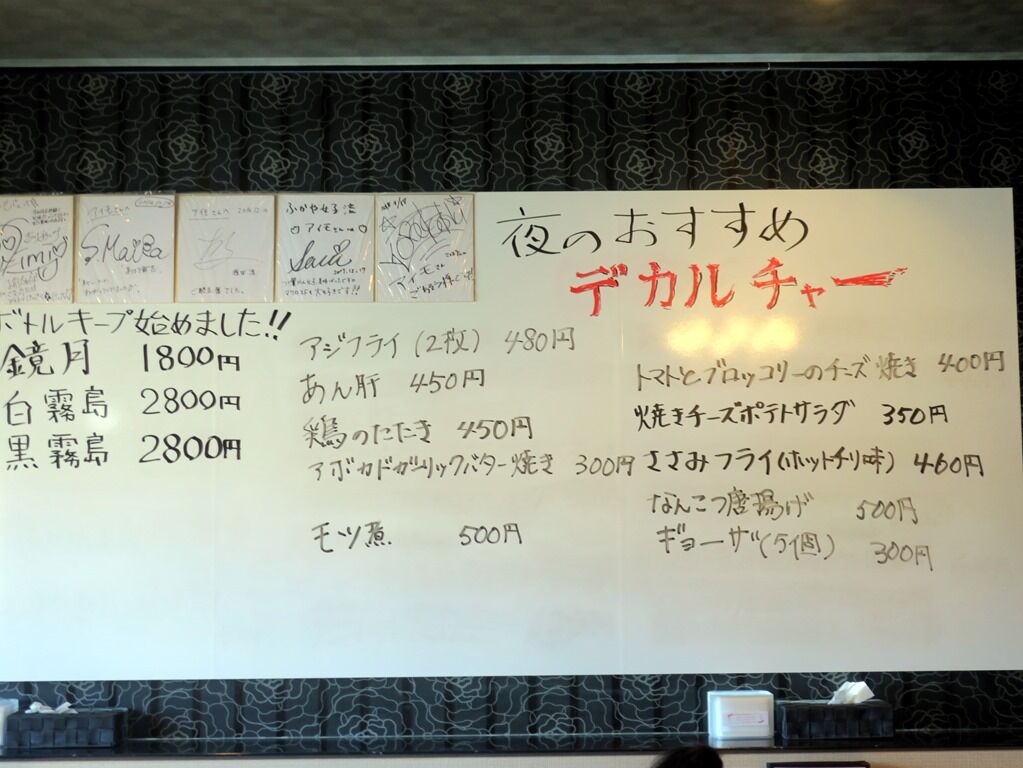 夜のおすすめ
デカルチャー
アイモさんへ
S.Maiea
アイモさんへ
ふかや女子渣
♡アイモさんへ♡
2017.12.17
アイモさん
ボトルキープ始めました!!
鏡月 1800円
白霧島 2800円
黒霧島 2800円
アジフライ(2枚) 480円
あん肝 450円
鶏のたたき 450円
アボカドガーリックバター焼き 300円
モツ煮 500円
トマトとブロッコリーのチーズ焼き 400円
焼きチーズポテトサラダ 350円
ささみフライ(ホットチリ味) 460円
なんこつ唐揚げ 500円
ギョーザ(5個) 300円